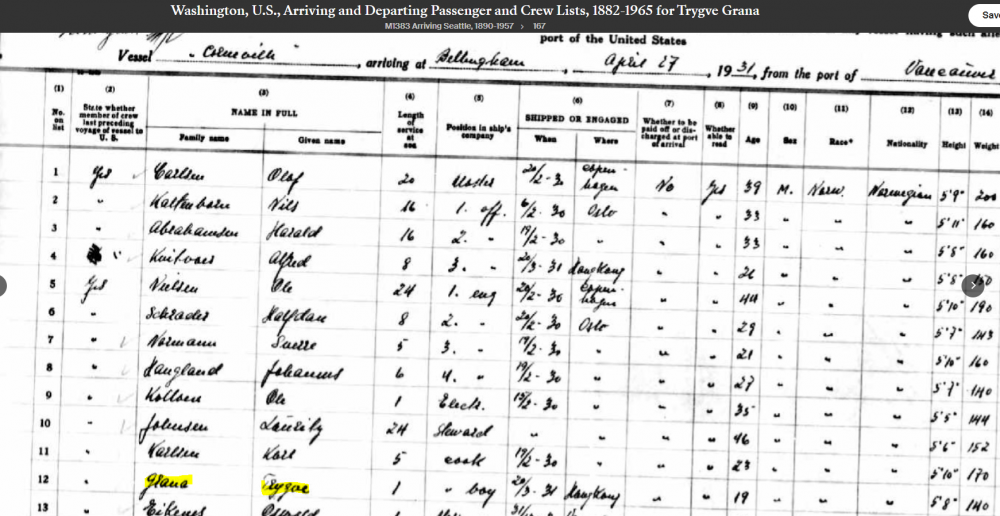 Washington, U.S., Arriving and Departing Passenger and Crew Lists, 1882-1965 for Trygve Grana
M1383 Arriving Seattle, 1890-1957 > 167
Save
port of the United States
Vessel , arriving at Bellingham , April 27 , 1931, from the port of Vancouver
(1) (2) (3) (4) (5) (6) (7) (8) (9) (10) (11) (12) (13) (14)
No. on list State whether member of crew last preceding voyage of vessel to U. S. NAME IN FULL Family name Given name Length of service at sea Position in ship's company SHIPPED OR ENGAGED When Where Whether to be paid off or discharged at port of arrival Whether able to read Age Sex Race* Nationality Height Weight
1 Yes Carlsen Olaf 20 Master 20/2-30 Copenhagen No Yes 39 M. Norw. Norwegian 5'9" 200
2 " Kaltenborn Nils 16 1. off. 6/2-30 Oslo " " 33 " " " 5'11" 160
3 " Abrahamsen Harald 16 2. " 19/2-30 " " " 33 " " " 5'8" 160
4 " Alfred 8 3. " 20/3-31 Hongkong " " 26 " " " 5'8" 150
5 Yes Nielsen Ole 24 1. eng 20/2-30 Copenhagen " " 44 " " " 5'10" 190
6 " Schrader Halfdan 8 2. " 20/2-30 Oslo " " 29 " " " 5'7" 143
7 " Normann Sverre 5 3. " 19/2-30 " " " 21 " " " 5'10" 160
8 " Haugland Johannes 6 4. " 19/2-30 " " " 27 " " " 5'7" 140
9 " Ole 1 Elect. 15/2-30 " " " 35 " " " 5'5" 144
10 " Johnsen 24 Steward " " " " 46 " " " 5'6" 152
11 " Karlsen Karl 5 cook 19/2-30 " " " 23 " " " 5'10" 170
12 " Grana Trygve 1 " boy 20/3-31 Hongkong " " 19 " " " 5'8" 140
13 Eikenes